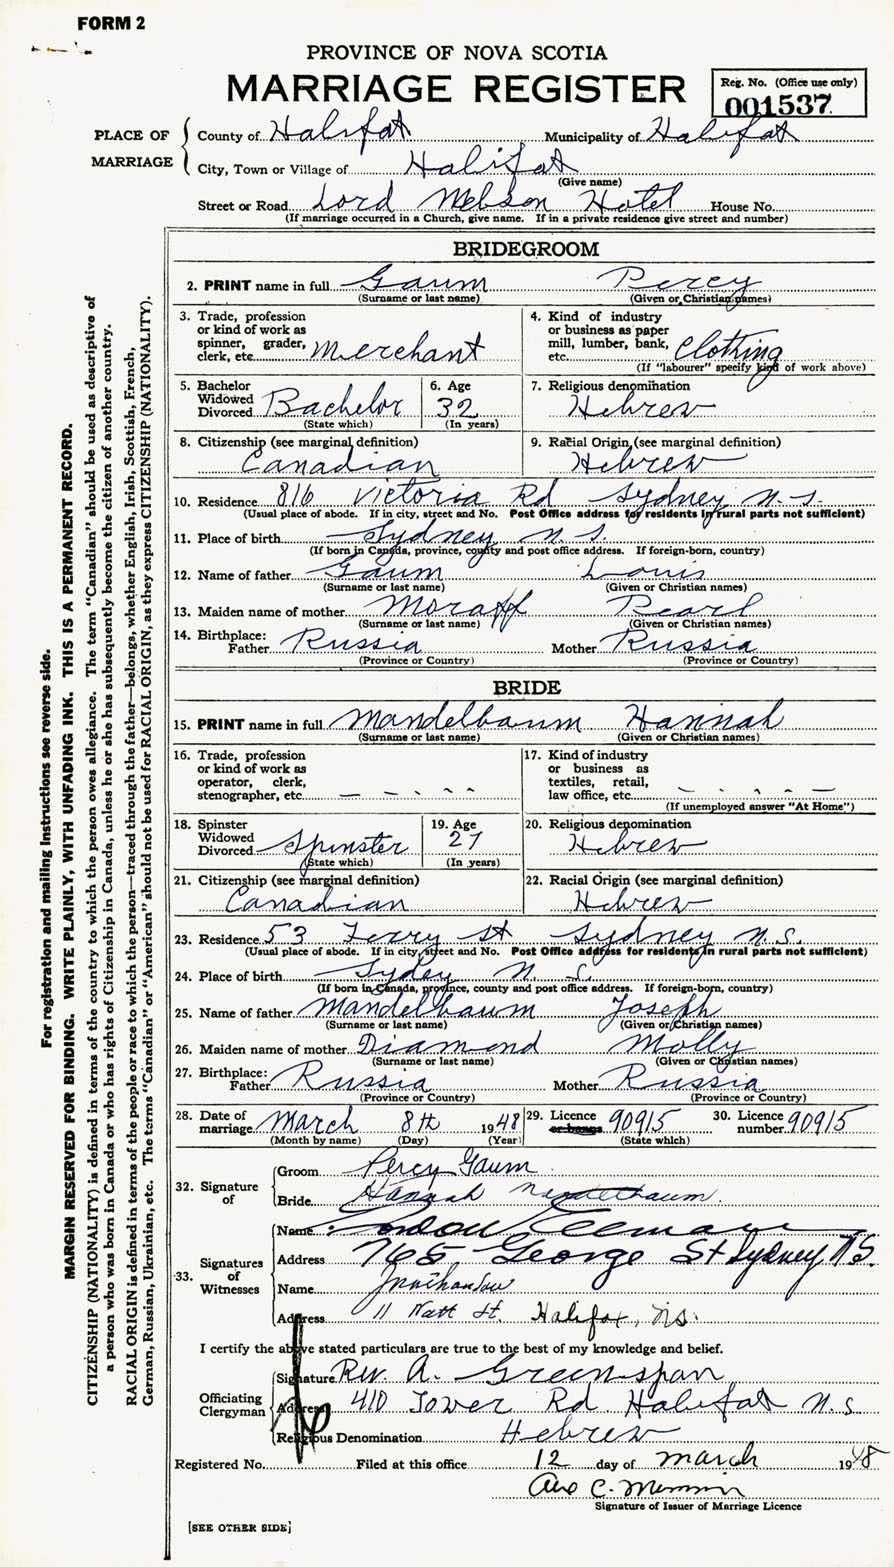 FORM 2
PROVINCE OF NOVA SCOTIA
MARRIAGE REGISTER
Reg. No. (Office use only)
001537
PLACE OF MARRIAGE
County of Halifax Municipality of Halifax
City, Town or Village of Halifax
(Give name)
Street or Road Lord Nelson Hotel House No.
(If marriage occurred in a Church, give name. If in a private residence give street and number)
BRIDEGROOM
2. PRINT name in full Gaum Percy
(Surname or last name) (Given or Christian names)
3. Trade, profession or kind of work as spinner, grader, clerk, etc. Merchant
4. Kind of industry or business as paper mill, lumber, bank, etc. Clothing
(If "labourer" specify kind of work above)
5. Bachelor Widowed Divorced Bachelor
(State which)
6. Age 32
(In years)
7. Religious denomination Hebrew
8. Citizenship (see marginal definition) Canadian
9. Racial Origin (see marginal definition) Hebrew
10. Residence 816 Victoria Rd Sydney N.S.
(Usual place of abode. If in city, street and No. Post Office address for residents in rural parts not sufficient)
11. Place of birth Sydney N.S.
(If born in Canada, province, county and post office address. If foreign-born, country)
12. Name of father Gaum Louis
(Surname or last name) (Given or Christian names)
13. Maiden name of mother Moraff Pearl
(Surname or last name) (Given or Christian names)
14. Birthplace: Father Russia Mother Russia
(Province or Country) (Province or Country)
BRIDE
15. PRINT name in full Mandelbaum Hannah
(Surname or last name) (Given or Christian names)
16. Trade, profession or kind of work as operator, clerk, stenographer, etc.
17. Kind of industry or business as textiles, retail, law office, etc.
(If unemployed answer "At Home")
18. Spinster Widowed Divorced Spinster
(State which)
19. Age 27
(In years)
20. Religious denomination Hebrew
21. Citizenship (see marginal definition) Canadian
22. Racial Origin (see marginal definition) Hebrew
23. Residence 53 Ferry St Sydney N.S.
(Usual place of abode. If in city, street and No. Post Office address for residents in rural parts not sufficient)
24. Place of birth Sydey N.S.
(If born in Canada, province, county and post office address. If foreign-born, country)
25. Name of father Mandelbaum Joseph
(Surname or last name) (Given or Christian names)
26. Maiden name of mother Diamond Molly
(Surname or last name) (Given or Christian names)
27. Birthplace: Father Russia Mother Russia
(Province or Country) (Province or Country)
28. Date of marriage March 8th 1948
(Month by name) (Day) (Year)
29. Licence or banns 90915
(State which)
30. Licence number 90915
32. Signature of
Groom Percy Gaum
Bride Hannah Mandelbaum
33. Signatures of Witnesses
Name
Address 765 George St Sydney NS.
Name
Address 11 Watt St. Halifax, N.S.
I certify the above stated particulars are true to the best of my knowledge and belief.
Officiating Clergyman
Signature Rev. A. Greenspan
Address 410 Tower Rd. Halifax N.S.
Religious Denomination Hebrew
Registered No. Filed at this office 12 day of March 1948
Signature of Issuer of Marriage Licence
[SEE OTHER SIDE]
For registration and mailing instructions see reverse side.
MARGIN RESERVED FOR BINDING. WRITE PLAINLY, WITH UNFADING INK. THIS IS A PERMANENT RECORD.
CITIZENSHIP (NATIONALITY) is defined in terms of the country to which the person owes allegiance. The term "Canadian" should be used as descriptive of
a person who was born in Canada or who has rights of Citizenship in Canada, unless he or she has subsequently become the citizen of another country.
RACIAL ORIGIN is defined in terms of the people or race to which the person—traced through the father—belongs, whether English, Irish, Scottish, French,
German, Russian, Ukrainian, etc. The terms "Canadian" or "American" should not be used for RACIAL ORIGIN, as they express CITIZENSHIP (NATIONALITY).